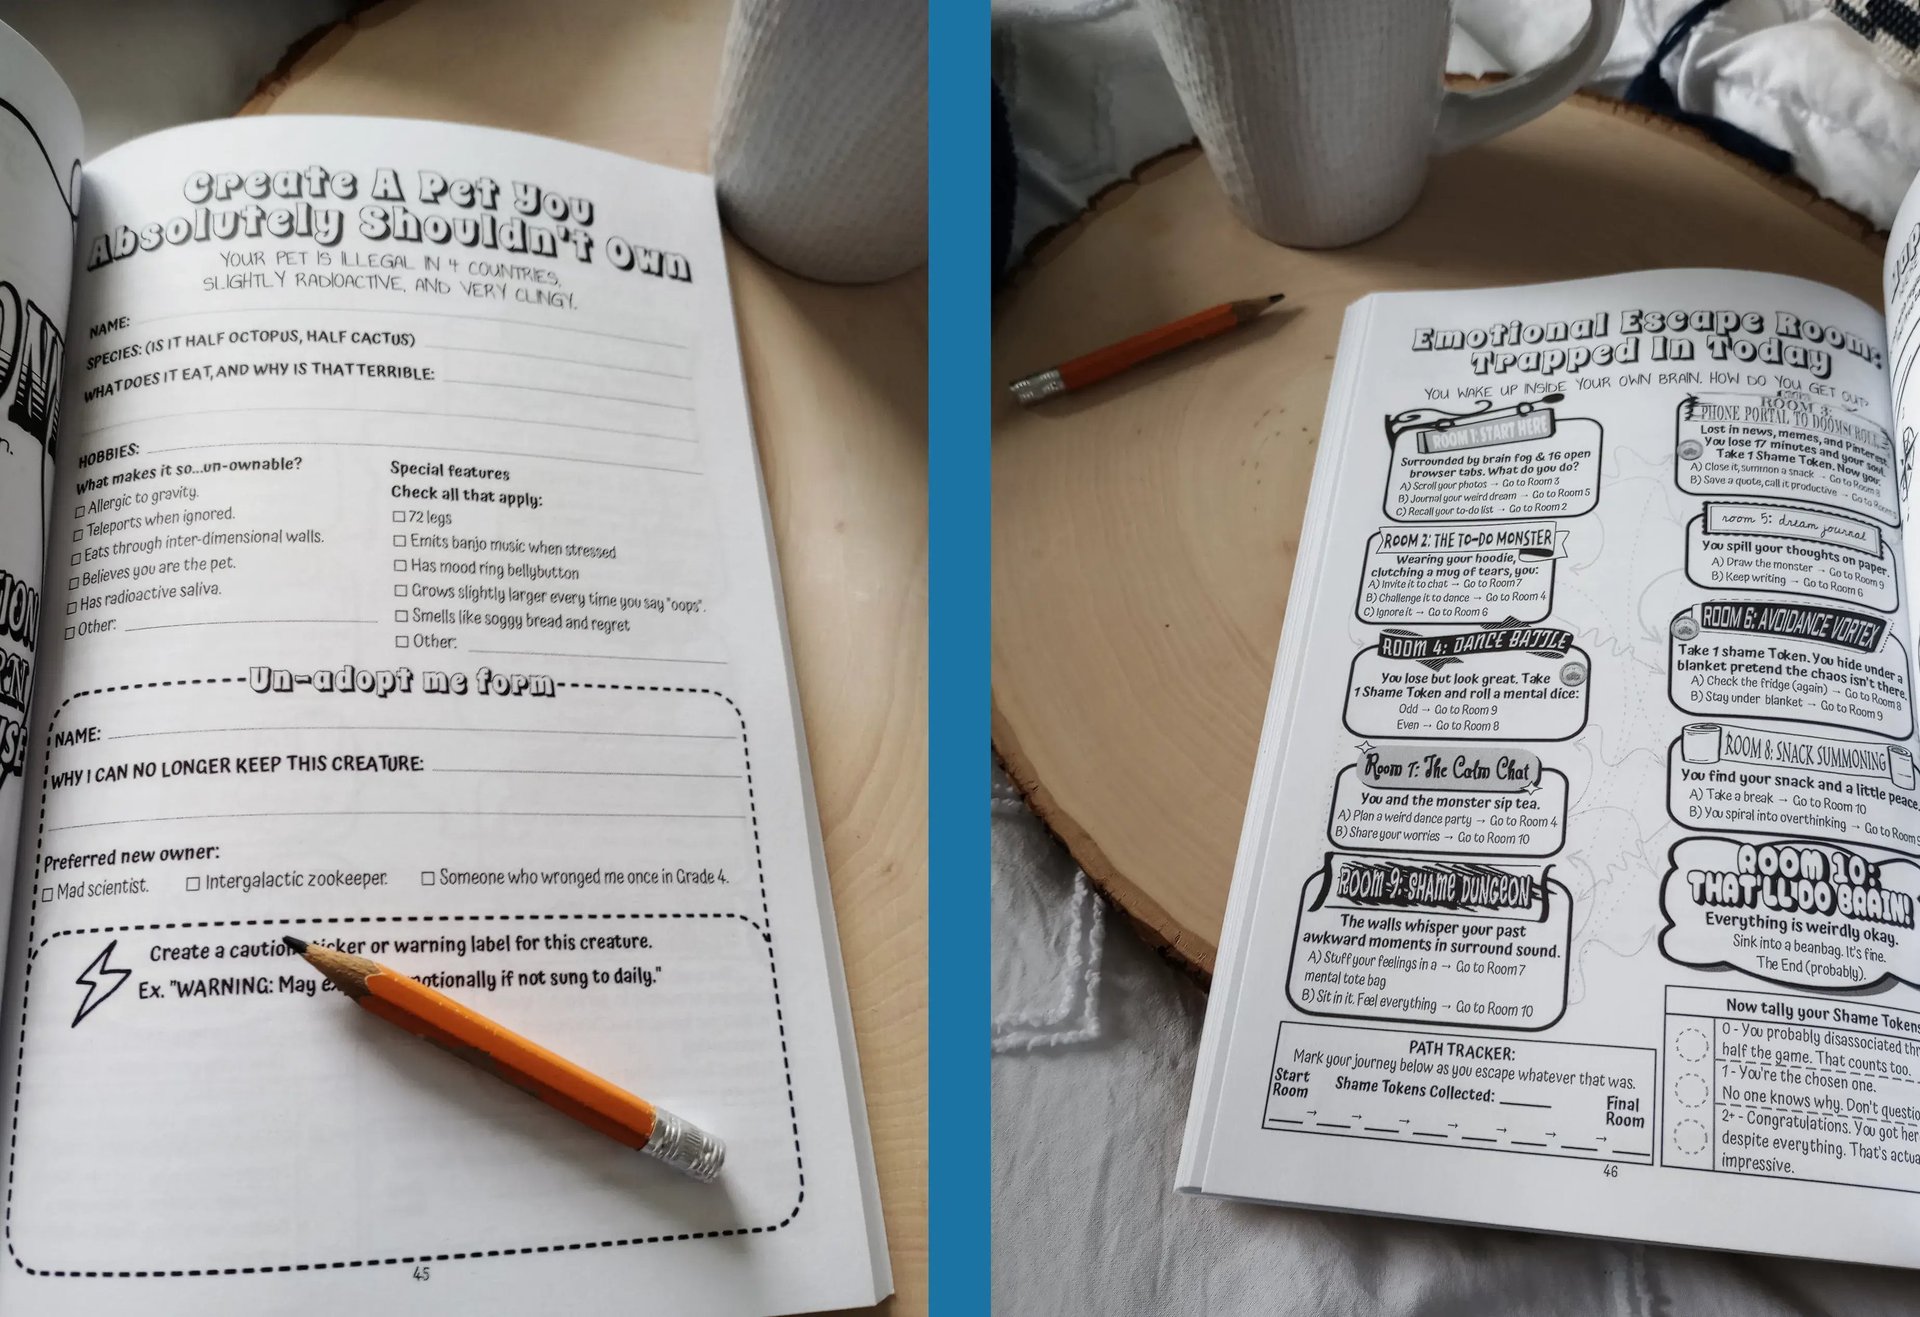 Create A Pet You
Absolutely Shouldn't Own
YOUR PET IS ILLEGAL IN 4 COUNTRIES,
SLIGHTLY RADIOACTIVE, AND VERY CLINGY.
NAME:
SPECIES: (IS IT HALF OCTOPUS, HALF CACTUS)
WHAT DOES IT EAT, AND WHY IS THAT TERRIBLE:
HOBBIES:
What makes it so...un-ownable?
Allergic to gravity.
Teleports when ignored.
Eats through inter-dimensional walls.
Believes you are the pet.
Has radioactive saliva.
Other:
Special features
Check all that apply:
72 legs
Emits banjo music when stressed
Has mood ring bellybutton
Grows slightly larger every time you say "oops".
Smells like soggy bread and regret
Other:
Un-adopt me form
NAME:
WHY I CAN NO LONGER KEEP THIS CREATURE:
Preferred new owner:
Mad scientist. Intergalactic zookeeper. Someone who wronged me once in Grade 4.
Create a caution or warning label for this creature.
Ex. "WARNING: May if not sung to daily."
45
Emotional Escape Room:
Trapped In Today
YOU WAKE UP INSIDE YOUR OWN BRAIN. HOW DO YOU GET OUT?
ROOM 1: START HERE
Surrounded by brain fog & 16 open
browser tabs. What do you do?
A) Scroll your photos → Go to Room 3
B) Journal your weird dream → Go to Room 5
C) Recall your to-do list → Go to Room 2
ROOM 2: THE TO-DO MONSTER
Wearing your hoodie,
clutching a mug of tears, you:
A) Invite it to chat → Go to Room 7
B) Challenge it to dance → Go to Room 4
C) Ignore it → Go to Room 6
ROOM 4: DANCE BATTLE
You lose but look great. Take
1 Shame Token and roll a mental dice:
Odd → Go to Room 9
Even → Go to Room 8
Room 7: The Calm Chat
You and the monster sip tea.
A) Plan a weird dance party → Go to Room 4
B) Share your worries → Go to Room 10
ROOM 9: SHAME DUNGEON
The walls whisper your past
awkward moments in surround sound.
A) Stuff your feelings in a → Go to Room 7
mental tote bag
B) Sit in it. Feel everything → Go to Room 10
ROOM 3:
PHONE PORTAL TO DOOMSCROLL
Lost in news, memes, and Pinterest
You lose 17 minutes and your soul.
Take 1 Shame Token. Now you:
A) Close it, summon a snack → Go to Room 8
B) Save a quote, call it productive → Go to Room
room 5: dream journal
You spill your thoughts on paper.
A) Draw the monster → Go to Room 9
B) Keep writing → Go to Room 6
ROOM 6: AVOIDANCE VORTEX
Take 1 shame Token. You hide under a
blanket pretend the chaos isn't there.
A) Check the fridge (again) → Go to Room 8
B) Stay under blanket → Go to Room 9
ROOM 8: SNACK SUMMONING
You find your snack and a little peace.
A) Take a break → Go to Room 10
B) You spiral into overthinking → Go to Room 9
ROOM 10:
THAT'LL DO BRAIN!
Everything is weirdly okay.
Sink into a beanbag. It's fine.
The End (probably).
PATH TRACKER:
Mark your journey below as you escape whatever that was.
Start
Room
Shame Tokens Collected:
Final
Room
Now tally your Shame Tokens
0 - You probably disassociated
half the game. That counts too.
1 - You're the chosen one.
No one knows why. Don't
2+ - Congratulations. You got
despite everything. That's
impressive.
46